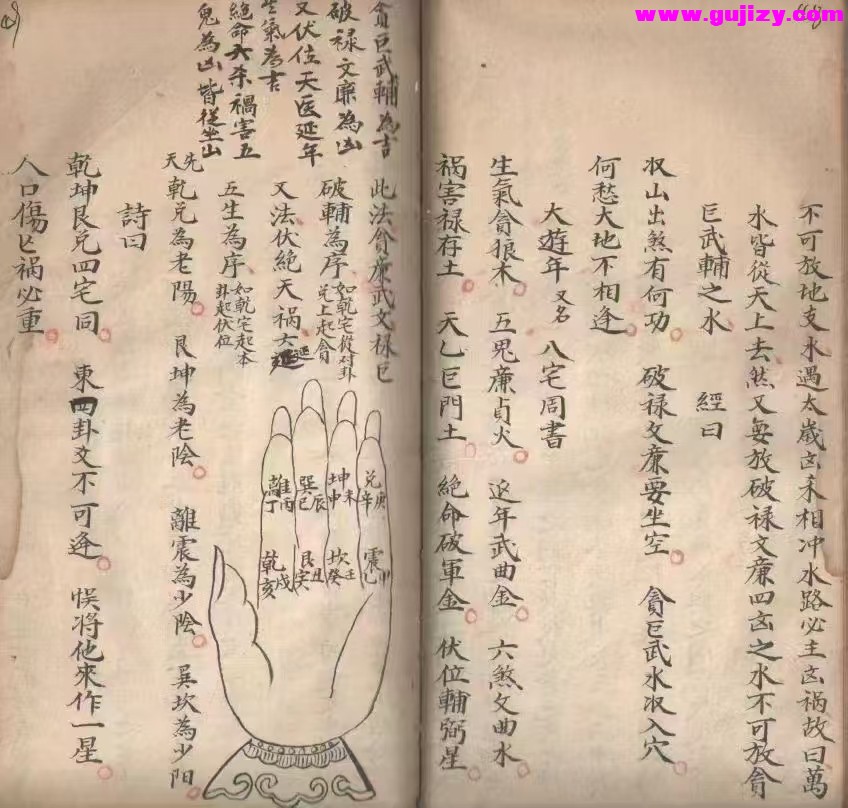 www.gujizy.com
不可放地支水遇太歲凶來相冲水路必主凶祸故曰萬
水皆從天上去煞又要放破禄文廉四凶之水不可放貪
巨武輔之水 經曰
収山出煞有何功 破禄文廉要坐空 貪巨武水収入穴
何愁大地不相逢
大遊年又名 八宅周書
生氣貪狼木 五鬼廉貞火 延年武曲金 六煞文曲水
祸害禄存土 天乙巨門土 絶命破軍金 伏位輔弼星
貪巨武輔為吉
破禄文廉為凶
又伏位天医延年
生氣為吉
絶命六杀禍害五
鬼為凶皆從坐山
此法貪廉武文禄巨
破輔為序如乾宅從对卦兑上起貪
又法伏絶天祸六延
五生為序如乾宅起本卦起伏位
先天乾兑為老陽 艮坤為老陰 離震為少陰 巽坎為少阳
詩曰
乾坤艮兑四宅同 東四卦爻不可逢 悞将他來作一星
人口傷亡祸必重
兑庚辛
坤未申
巽辰巳
離丙丁
震甲乙
坎壬癸
艮丑寅
乾戌亥